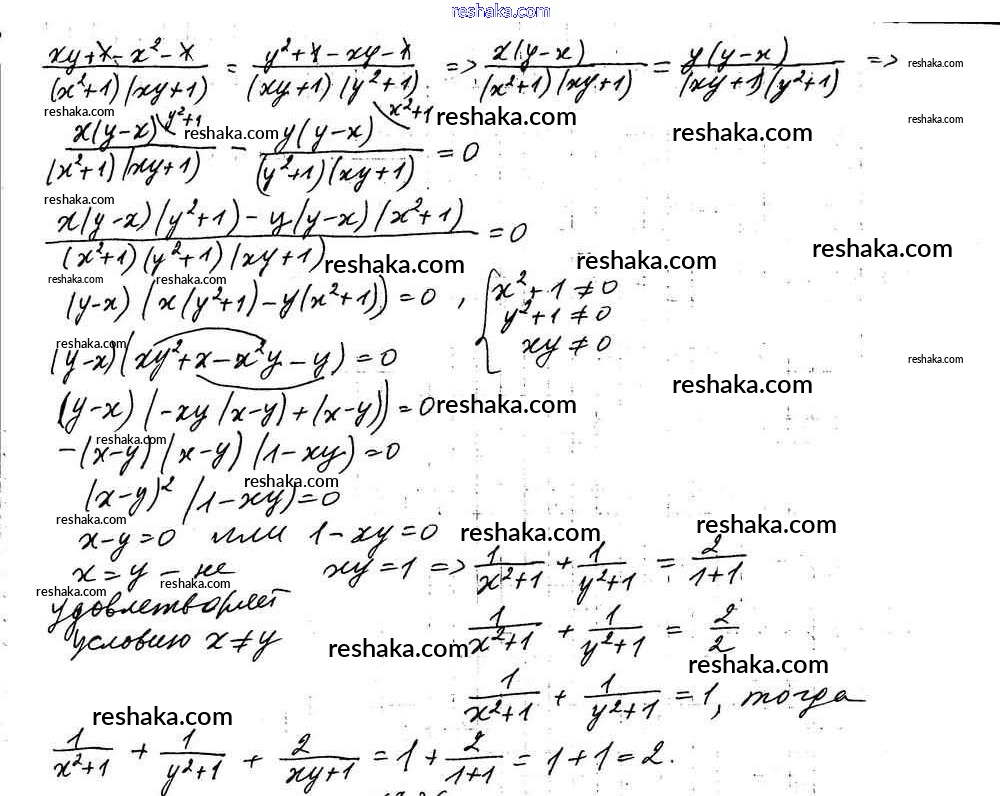 reshaka.com
(xy+1-x²-1)/((x²+1)(xy+1)) = (y²+1-xy-1)/((xy+1)(y²+1)) => x(y-x)/((x²+1)(xy+1)) = y(y-x)/((xy+1)(y²+1)) => reshaka.com
reshaka.com reshaka.com reshaka.com reshaka.com reshaka.com
x(y-x)\y²+1/((x²+1)(xy+1)) - y(y-x)\x²+1/((y²+1)(xy+1)) = 0
reshaka.com
(x(y-x)(y²+1)-y(y-x)(x²+1))/((x²+1)(y²+1)(xy+1)) = 0
reshaka.com reshaka.com reshaka.com
reshaka.com reshaka.com
(y-x)(x(y²+1)-y(x²+1))=0, { x²+1≠0
y²+1≠0
xy≠0
reshaka.com reshaka.com
(y-x)(xy²+x-x²y-y)=0
reshaka.com
(y-x)(-xy(x-y)+(x-y))=0 reshaka.com
reshaka.com
-(x-y)(x-y)(1-xy)=0
reshaka.com
(x-y)²(1-xy)=0
reshaka.com reshaka.com
x-y=0 или 1-xy=0 reshaka.com
x=y - не xy=1 => 1/(x²+1) + 1/(y²+1) = 2/(1+1)
reshaka.com reshaka.com
удовлетворяет
условию x≠y reshaka.com 1/(x²+1) + 1/(y²+1) = 2/2
reshaka.com
1/(x²+1) + 1/(y²+1) = 1, тогда
reshaka.com
1/(x²+1) + 1/(y²+1) + 2/(xy+1) = 1 + 2/(1+1) = 1+1=2.